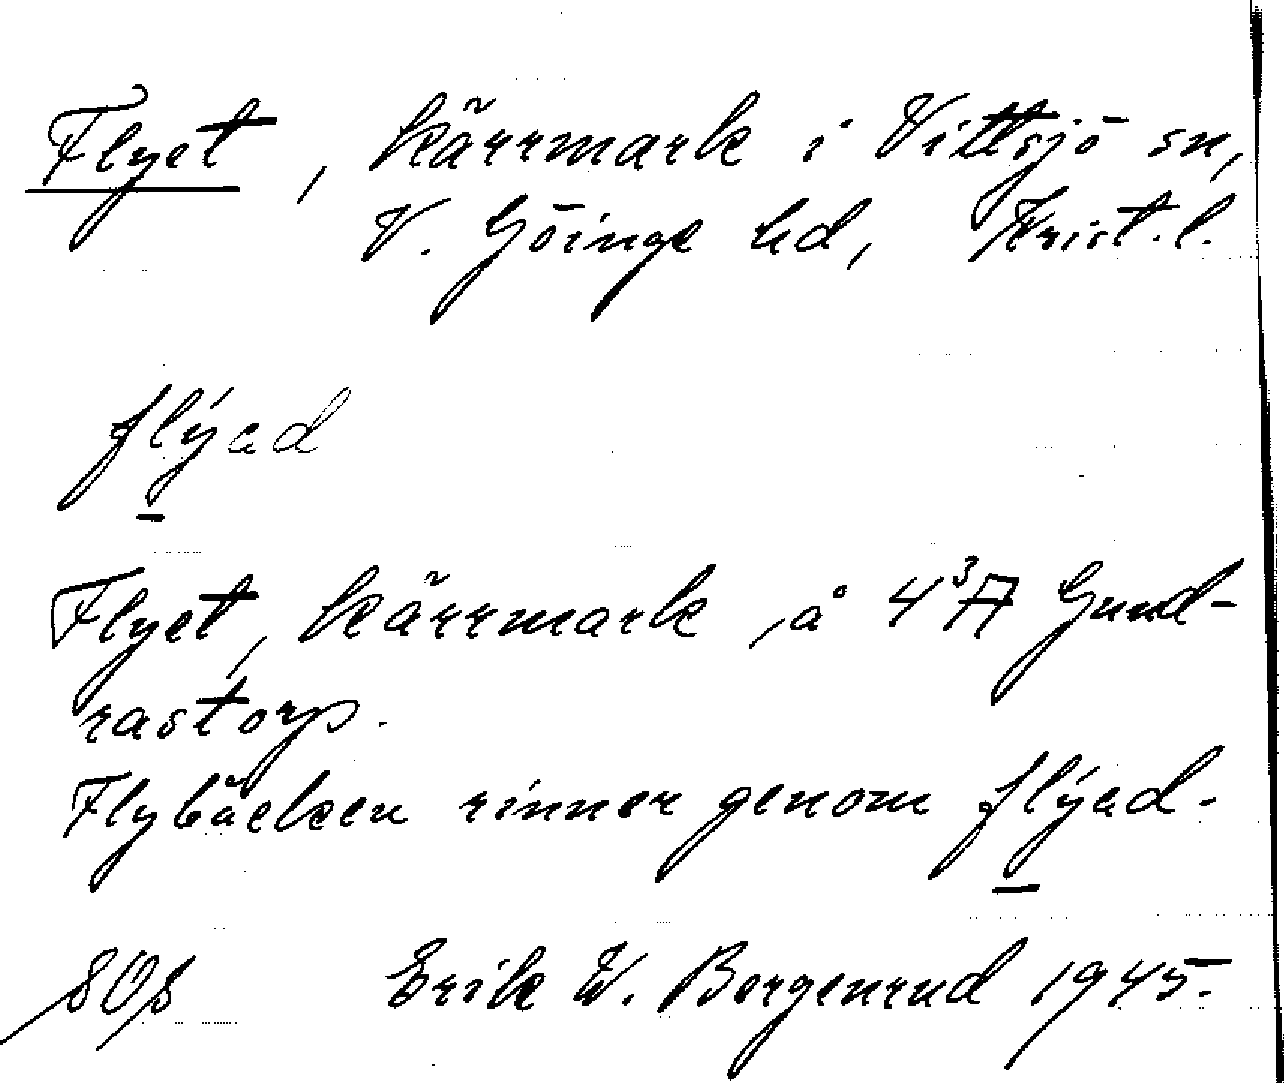 Flyet, kärrmark i Vittsjö sn,
V. Göinge hd, Krist. l.
flýad
Flyet, kärrmark, å 4³A Gund-
rastorp.
Flybäcken rinner genom flýad-
Erik W. Borgenrud 1945.